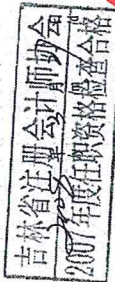 吉林省注册会计师协会
2007年度任职资格检查合格